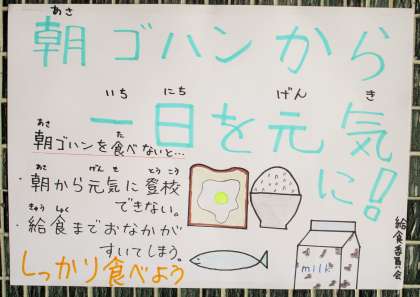 あさ
朝ゴハンから
いちにち げんき
一日を元気に!
あさ た
朝ゴハンを食べないと…
あさ げんき とうこう
・朝から元気に登校
できない。
きゅうしょく
・給食までおなかが
すいてしまう。
しっかり食べよう
milk
給食委員会